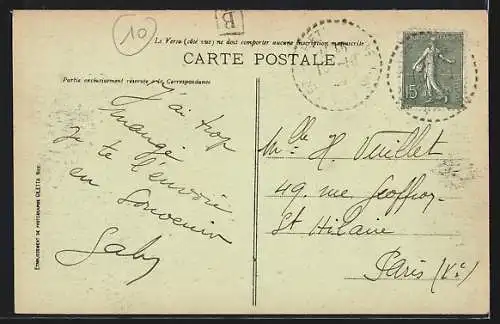 10
B
Le Verso (côté vue) ne doit comporter aucune inscription manuscrite
CARTE POSTALE
Partie exclusivement réservée à la Correspondance
J'ai trop
mangé
je te l'envoie
en souvenir
Gaby
15
Mlle H. Vuillet
49. rue Geoffroy
St Hilaire
Paris (Ve)
ETABLISSEMENT DE PHOTOGRAPHIE GILETTA NICE